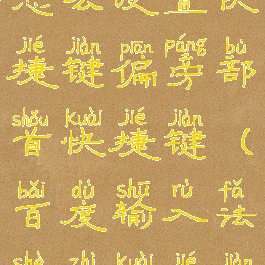 怎么设置快
jié jiàn piān páng bù
捷键偏旁部
shǒu kuài jié jiàn
首快捷键(
bǎi dù shū rù fǎ
百度输入法
shè zhì kuài jié jiàn